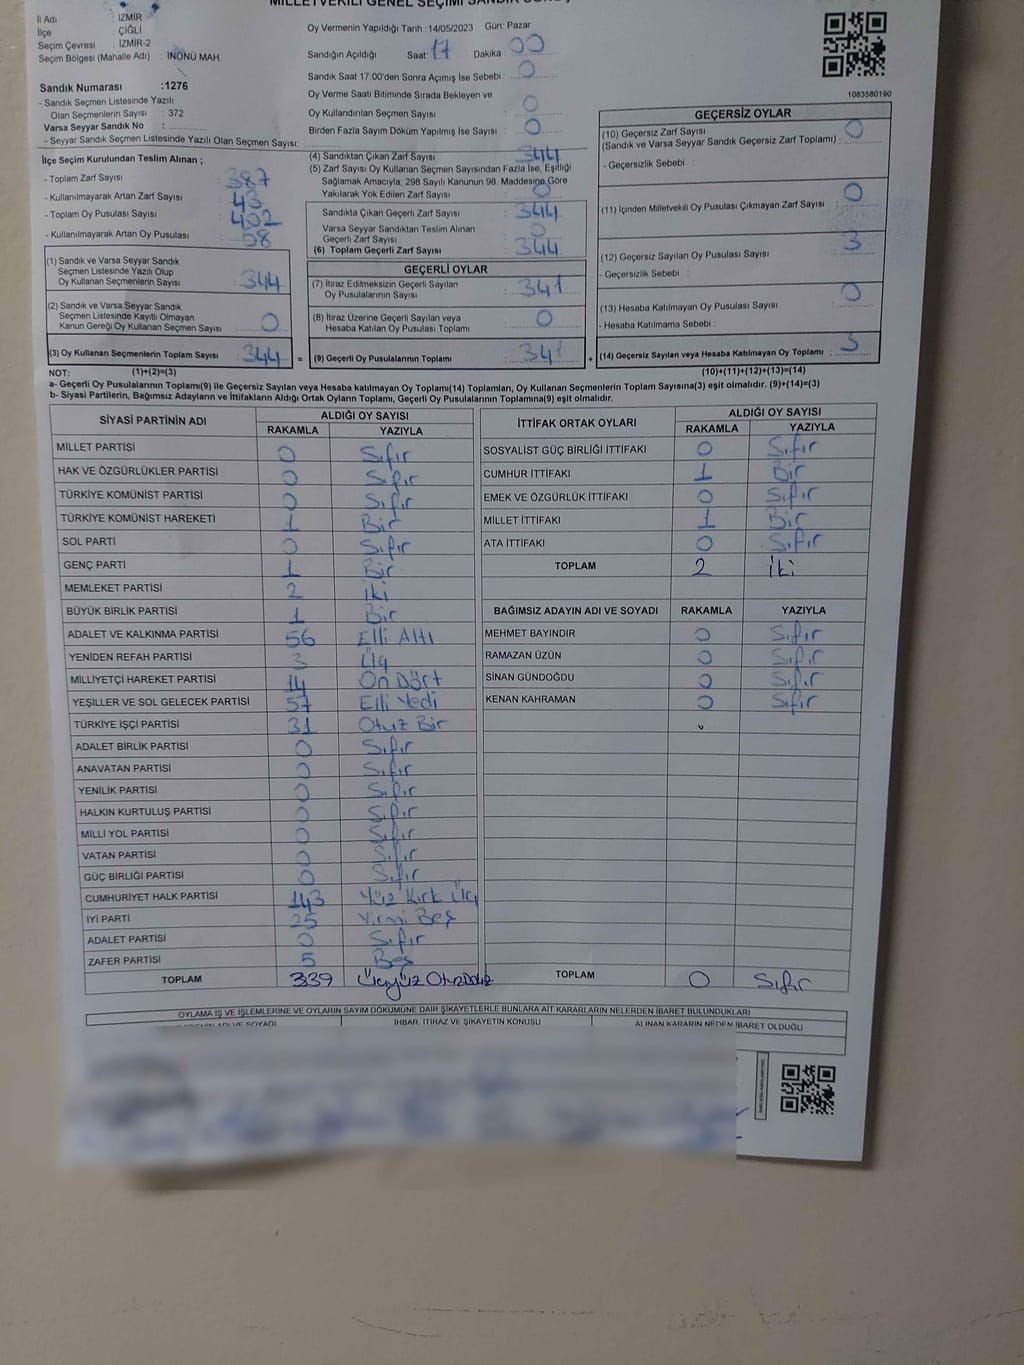 MİLLETVEKİLİ GENEL SEÇİMİ SANDIK
İl Adı : İZMİR
İlçe : ÇİĞLİ
Seçim Çevresi : İZMİR-2
Seçim Bölgesi (Mahalle Adı) : İNÖNÜ MAH.
Sandık Numarası :1276
- Sandık Seçmen Listesinde Yazılı
Olan Seçmenlerin Sayısı : 372
Varsa Seyyar Sandık No :
- Seyyar Sandık Seçmen Listesinde Yazılı Olan Seçmen Sayısı:
Oy Vermenin Yapıldığı Tarih : 14/05/2023 Gün: Pazar
Sandığın Açıldığı Saat : 17 Dakika : 00
Sandık Saat 17:00'den Sonra Açımış İse Sebebi : 0
Oy Verme Saati Bitiminde Sırada Bekleyen ve
Oy Kullandırılan Seçmen Sayısı : 0
Birden Fazla Sayım Döküm Yapılmış İse Sayısı : 0
1083580190
İlçe Seçim Kurulundan Teslim Alınan ;
- Toplam Zarf Sayısı : 387
- Kullanılmayarak Artan Zarf Sayısı : 43
- Toplam Oy Pusulası Sayısı : 402
- Kullanılmayarak Artan Oy Pusulası : 58
(1) Sandık ve Varsa Seyyar Sandık
Seçmen Listesinde Yazılı Olup
Oy Kullanan Seçmenlerin Sayısı : 344
(2) Sandık ve Varsa Seyyar Sandık
Seçmen Listesinde Kayıtlı Olmayan
Kanun Gereği Oy Kullanan Seçmen Sayısı : 0
(3) Oy Kullanan Seçmenlerin Toplam Sayısı : 344 =
(4) Sandıktan Çıkan Zarf Sayısı : 344
(5) Zarf Sayısı Oy Kullanan Seçmen Sayısından Fazla İse, Eşitliği
Sağlamak Amacıyla; 298 Sayılı Kanunun 98. Maddesine Göre
Yakılarak Yok Edilen Zarf Sayısı : 0
Sandıkta Çıkan Geçerli Zarf Sayısı : 344
Varsa Seyyar Sandıktan Teslim Alınan
Geçerli Zarf Sayısı : 0
(6) Toplam Geçerli Zarf Sayısı : 344
GEÇERLİ OYLAR
(7) İtiraz Edilmeksizin Geçerli Sayılan
Oy Pusulalarının Sayısı : 341
(8) İtiraz Üzerine Geçerli Sayılan veya
Hesaba Katılan Oy Pusulası Toplamı : 0
(9) Geçerli Oy Pusulalarının Toplamı : 341 +
GEÇERSİZ OYLAR
(10) Geçersiz Zarf Sayısı
(Sandık ve Varsa Seyyar Sandık Geçersiz Zarf Toplamı) : 0
- Geçersizlik Sebebi :
(11) İçinden Milletvekili Oy Pusulası Çıkmayan Zarf Sayısı : 0
(12) Geçersiz Sayılan Oy Pusulası Sayısı : 3
- Geçersizlik Sebebi :
(13) Hesaba Katılmayan Oy Pusulası Sayısı : 0
- Hesaba Katılmama Sebebi :
(14) Geçersiz Sayılan veya Hesaba Katılmayan Oy Toplamı : 3
NOT: (1)+(2)=(3) (10)+(11)+(12)+(13)=(14)
a- Geçerli Oy Pusulalarının Toplamı(9) ile Geçersiz Sayılan veya Hesaba katılmayan Oy Toplamı(14) Toplamları, Oy Kullanan Seçmenlerin Toplam Sayısına(3) eşit olmalıdır. (9)+(14)=(3)
b- Siyasi Partilerin, Bağımsız Adayların ve İttifakların Aldığı Ortak Oyların Toplamı, Geçerli Oy Pusulalarının Toplamına(9) eşit olmalıdır.
SİYASİ PARTİNİN ADI ALDIĞI OY SAYISI
RAKAMLA YAZIYLA
MİLLET PARTİSİ 0 Sıfır
HAK VE ÖZGÜRLÜKLER PARTİSİ 0 Sıfır
TÜRKİYE KOMÜNİST PARTİSİ 0 Sıfır
TÜRKİYE KOMÜNİST HAREKETİ 1 Bir
SOL PARTİ 0 Sıfır
GENÇ PARTİ 1 Bir
MEMLEKET PARTİSİ 2 İki
BÜYÜK BİRLİK PARTİSİ 1 Bir
ADALET VE KALKINMA PARTİSİ 56 Elli Altı
YENİDEN REFAH PARTİSİ 3 Üç
MİLLİYETÇİ HAREKET PARTİSİ 14 On Dört
YEŞİLLER VE SOL GELECEK PARTİSİ 57 Elli Yedi
TÜRKİYE İŞÇİ PARTİSİ 31 Otuz Bir
ADALET BİRLİK PARTİSİ 0 Sıfır
ANAVATAN PARTİSİ 0 Sıfır
YENİLİK PARTİSİ 0 Sıfır
HALKIN KURTULUŞ PARTİSİ 0 Sıfır
MİLLİ YOL PARTİSİ 0 Sıfır
VATAN PARTİSİ 0 Sıfır
GÜÇ BİRLİĞİ PARTİSİ 0 Sıfır
CUMHURİYET HALK PARTİSİ 143 Yüz Kırk Üç
İYİ PARTİ 25 Yirmi Beş
ADALET PARTİSİ 0 Sıfır
ZAFER PARTİSİ 5 Beş
TOPLAM 339 Üçyüz Otuzdokuz
İTTİFAK ORTAK OYLARI ALDIĞI OY SAYISI
RAKAMLA YAZIYLA
SOSYALİST GÜÇ BİRLİĞİ İTTİFAKI 0 Sıfır
CUMHUR İTTİFAKI 1 Bir
EMEK VE ÖZGÜRLÜK İTTİFAKI 0 Sıfır
MİLLET İTTİFAKI 1 Bir
ATA İTTİFAKI 0 Sıfır
TOPLAM 2 İki
BAĞIMSIZ ADAYIN ADI VE SOYADI RAKAMLA YAZIYLA
MEHMET BAYINDIR 0 Sıfır
RAMAZAN ÜZÜN 0 Sıfır
SİNAN GÜNDOĞDU 0 Sıfır
KENAN KAHRAMAN 0 Sıfır
TOPLAM 0 Sıfır
OYLAMA İŞ VE İŞLEMLERİNE VE OYLARIN SAYIM DÖKÜMÜNE DAİR ŞİKAYETLERLE BUNLARA AİT KARARLARIN NELERDEN İBARET BULUNDUKLARI
ADI VE SOYADI İHBAR, İTİRAZ VE ŞİKAYETİN KONUSU ALINAN KARARIN NEDEN İBARET OLDUĞU